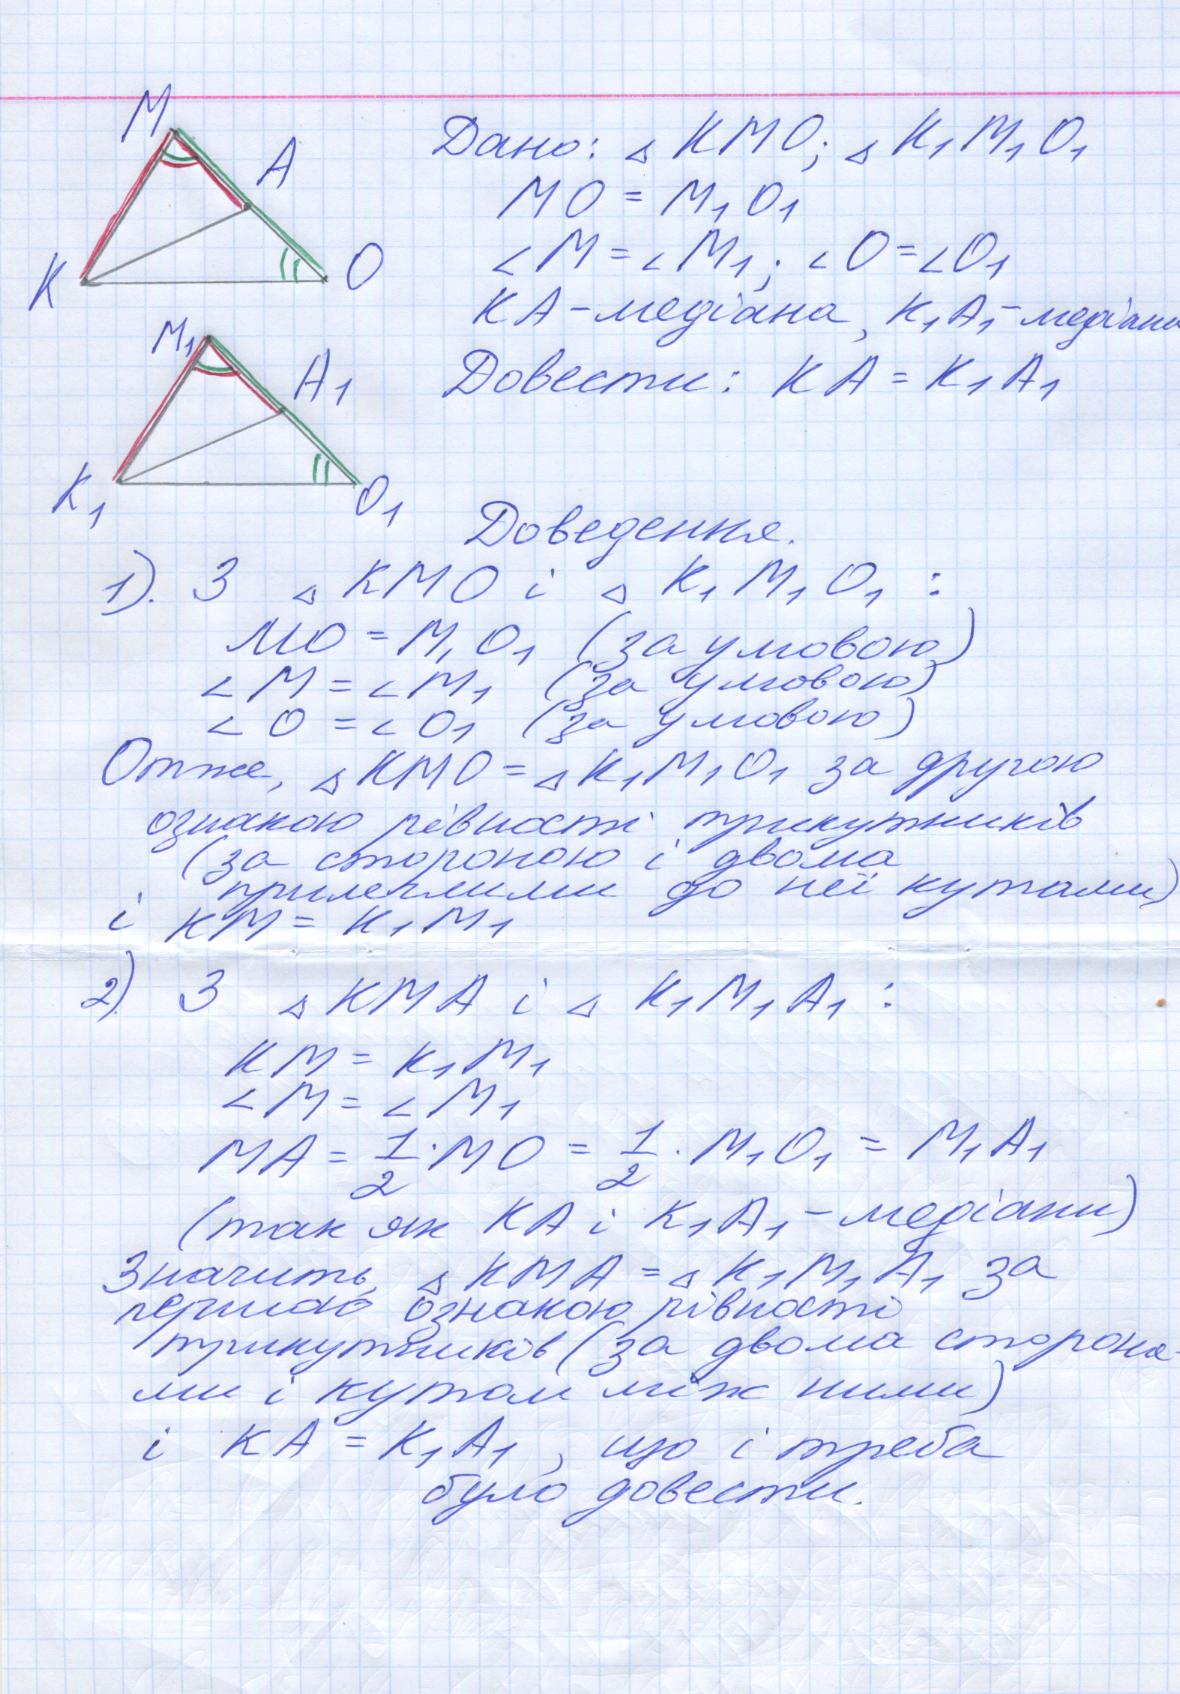 M
A
K
O
Дано: △ KMO; △ K₁M₁O₁
MO = M₁O₁
∠M = ∠M₁; ∠O = ∠O₁
KA - медіана, K₁A₁ - медіана
M₁
A₁
K₁
O₁
Довести: KA = K₁A₁
Доведення.
1). З △ KMO і △ K₁M₁O₁ :
MO = M₁O₁ (за умовою)
∠M = ∠M₁ (за умовою)
∠O = ∠O₁ (за умовою)
Отже, △KMO = △K₁M₁O₁ за другою
ознакою рівності трикутників
(за стороною і двома
прилеглими до неї кутами)
і KM = K₁M₁
2) З △ KMA і △ K₁M₁A₁ :
KM = K₁M₁
∠M = ∠M₁
MA = 1/2 · MO = 1/2 · M₁O₁ = M₁A₁
(так як KA і K₁A₁ - медіани)
Значить, △KMA = △K₁M₁A₁ за
першою ознакою рівності
трикутників (за двома сторона-
ми і кутом між ними)
і KA = K₁A₁, що і треба
було довести.